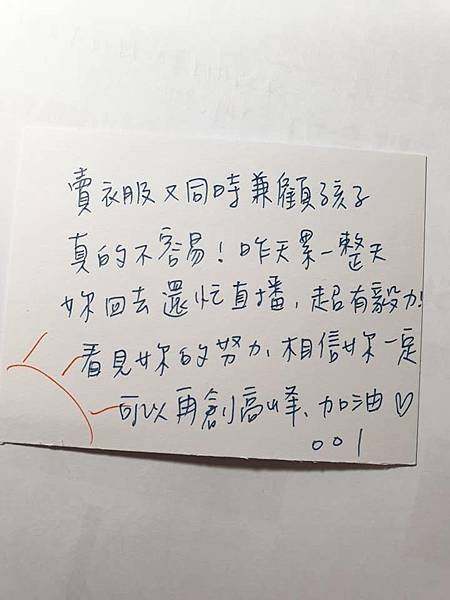 賣衣服又同時兼顧孩子
真的不容易！昨天累一整天
妳回去還忙直播，超有毅力！
看見妳的努力，相信妳一定
可以再創高峰、加油♡
001